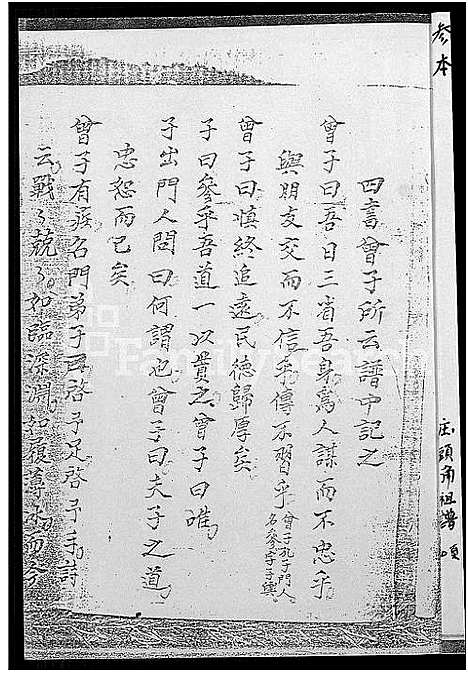 參本
庄頭角祖譜
四書曾子所云譜中記之
曾子曰吾日三省吾身為人謀而不忠乎
與朋友交而不信乎傳不習乎曾子孔子門人名參字子輿
曾子曰慎終追遠民德歸厚矣
子曰參乎吾道一以貫之曾子曰唯
子出門人問曰何謂也曾子曰夫子之道
忠恕而已矣
曾子有疾召門弟子曰啓予足啓予手詩
云戰々兢々如臨深淵如履薄氷而今